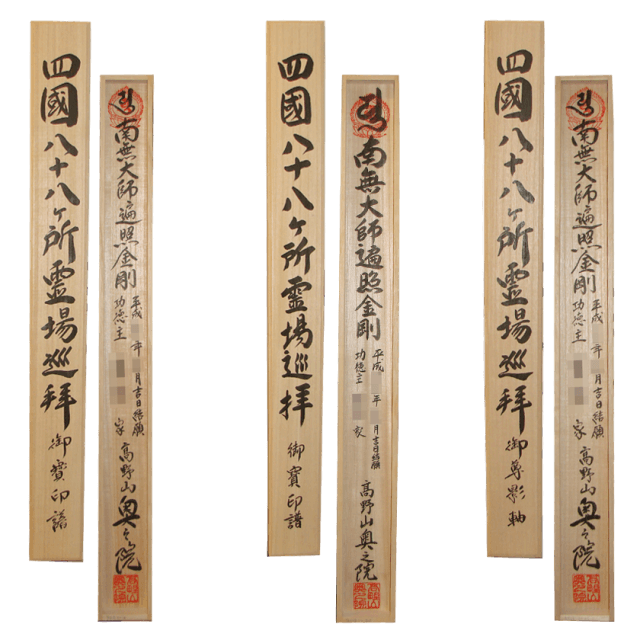 四國八十八ヶ所霊場巡拝
御寳印譜
南無大師遍照金剛
平成 年 月吉日結願
功徳主 家
高野山奥之院
四國八十八ヶ所霊場巡拝
御寳印譜
南無大師遍照金剛
平成 年 月吉日結願
功徳主
高野山奥之院
四國八十八ヶ所霊場巡拝
御尊影軸
南無大師遍照金剛
平成 年 月吉日結願
功徳主 家
高野山奥之院